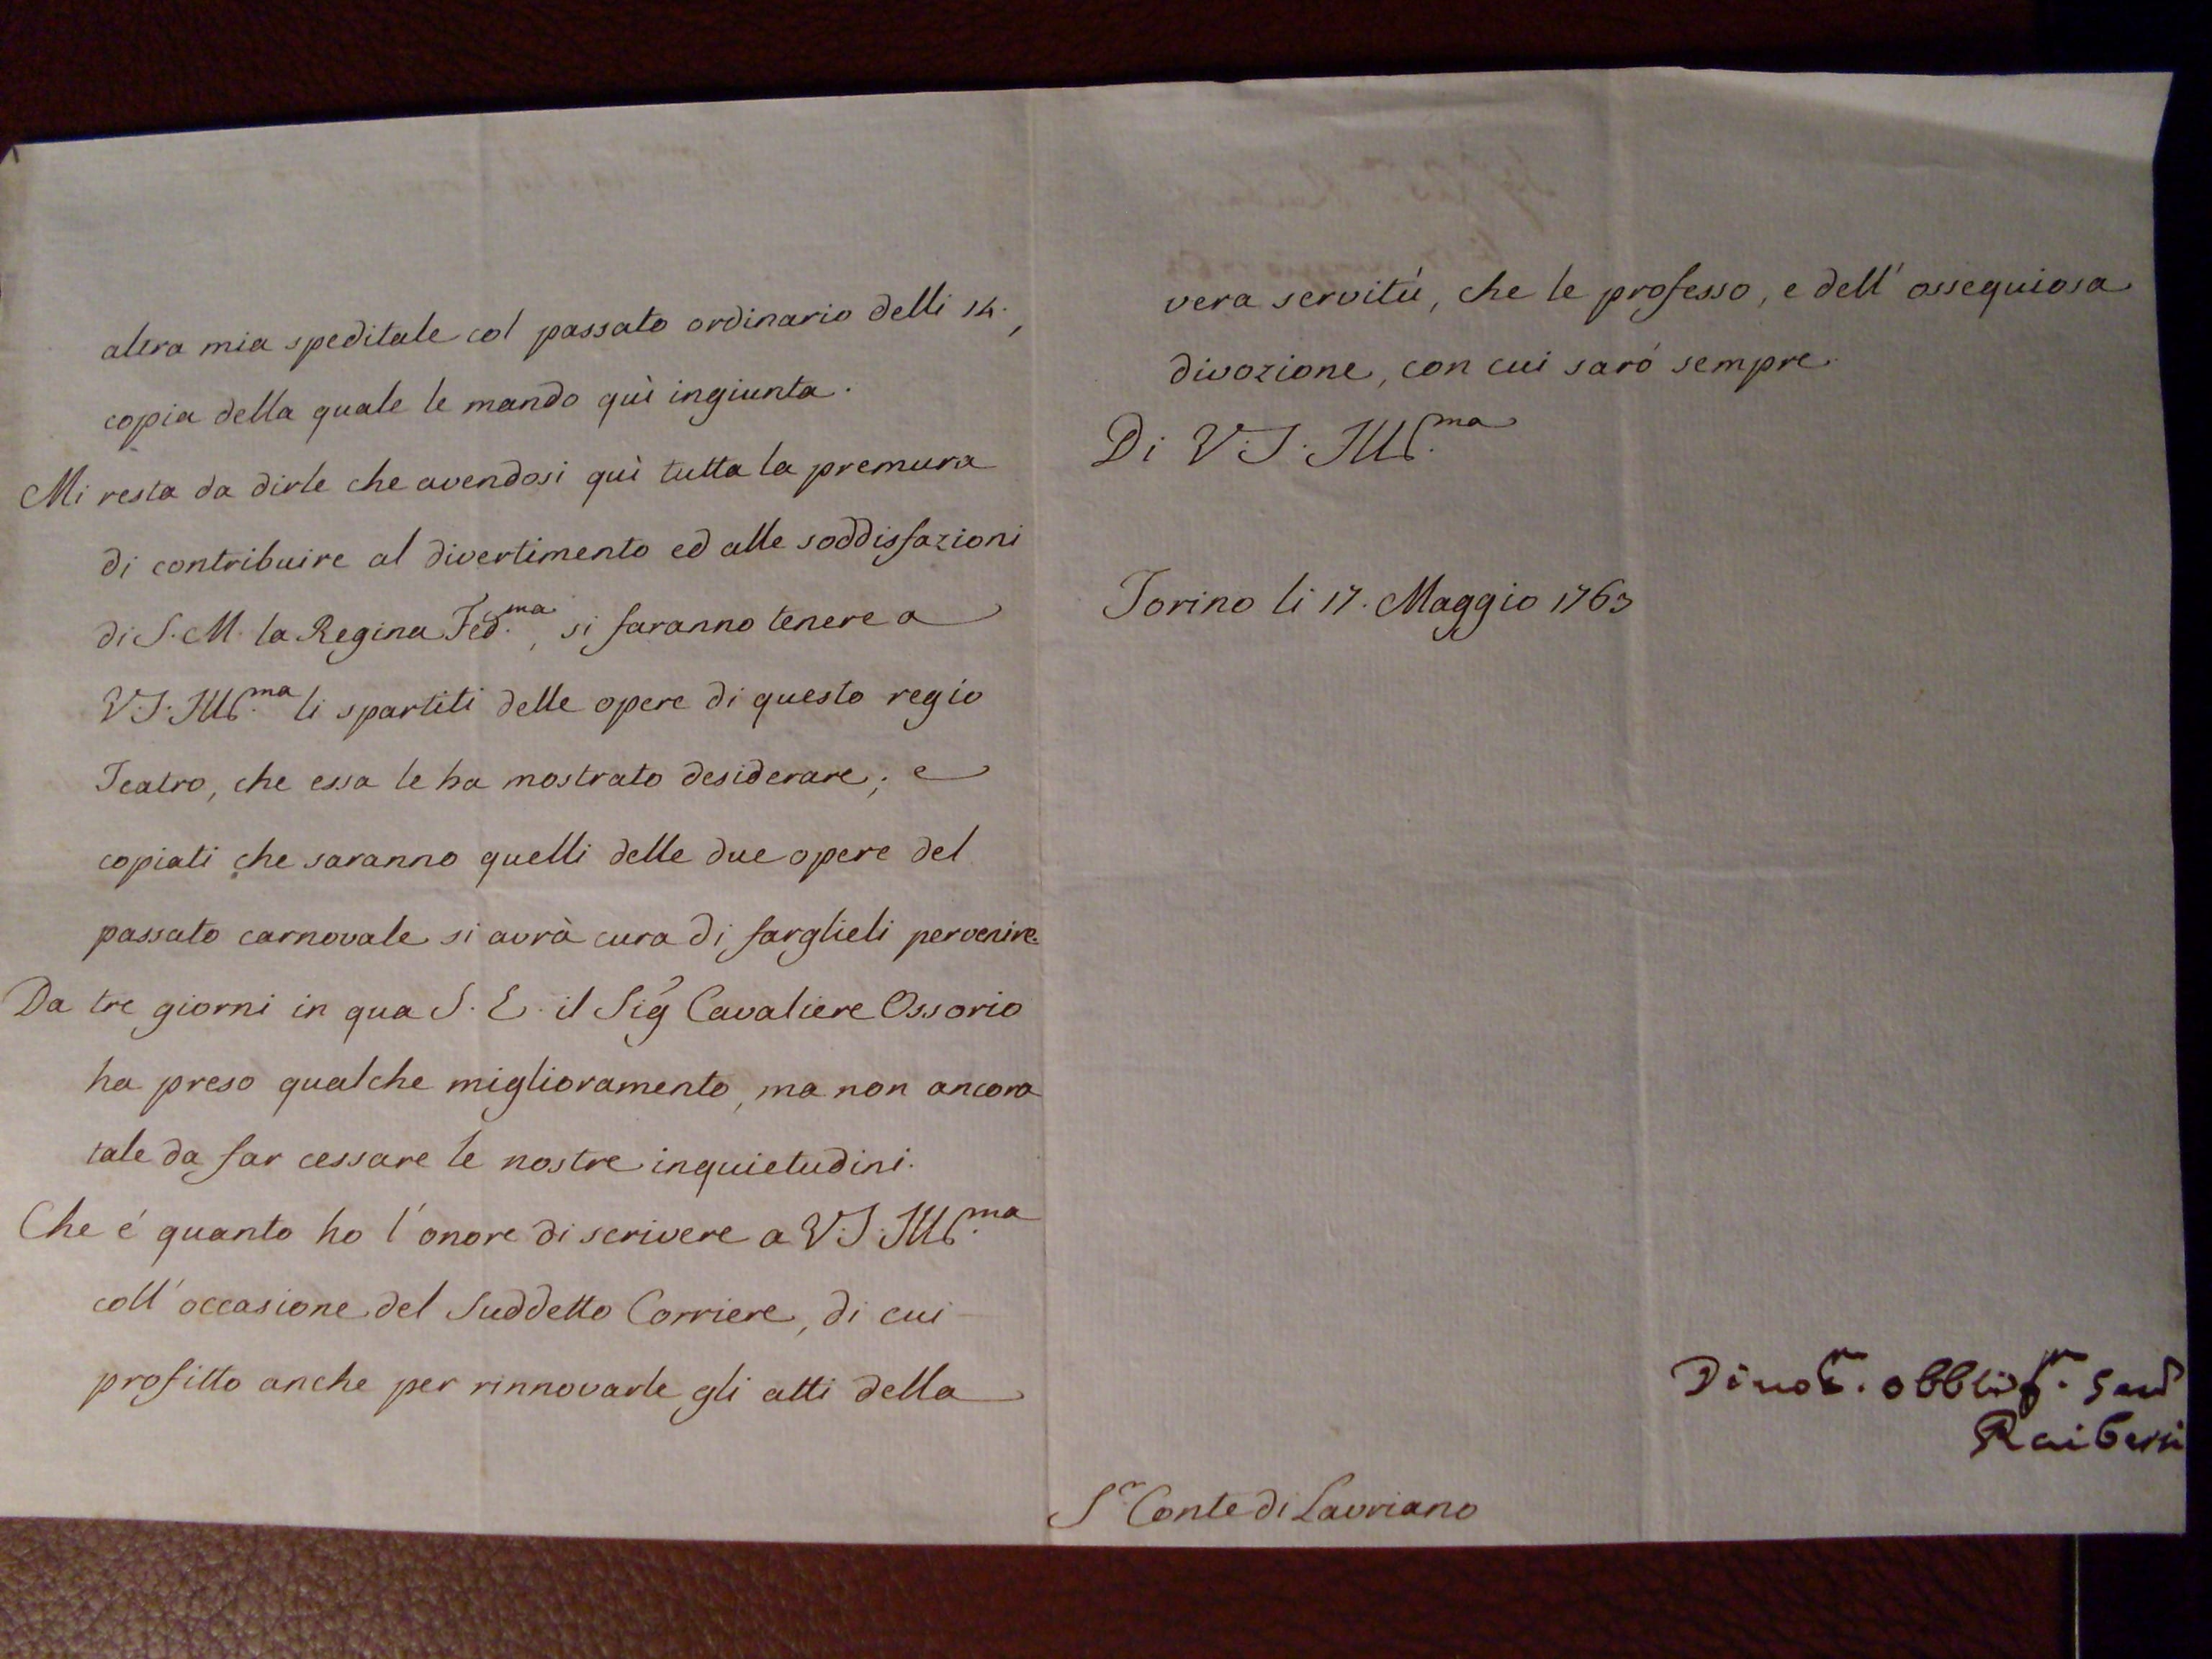 altra mia speditale col passato ordinario delli 14.,
copia della quale le mando quì ingiunta.
Mi resta da dirle che avendosi quì tutta la premura
di contribuire al divertimento ed alle soddisfazioni
di S. M. la Regina Fed.ma, si faranno tenere a
V. S. Ill.ma li spartiti delle opere di questo regio
Teatro, che essa le ha mostrato desiderare; e
copiati che saranno quelli delle due opere del
passato carnovale si avrà cura di farglieli pervenire.
Da tre giorni in qua S. E. il Sig Cavaliere Ossorio
ha preso qualche miglioramento, ma non ancora
tale da far cessare le nostre inquietudini.
Che é quanto ho l'onore di scrivere a V. S. Ill.ma
coll'occasione del Suddetto Corriere, di cui
profitto anche per rinnovarle gli atti della
vera servitú, che le professo, e dell'ossequiosa
divozione, con cui saró sempre
Di V. S. Ill.ma
Torino li 17. Maggio 1763
Raiberti
Sr Conte di Lavriano